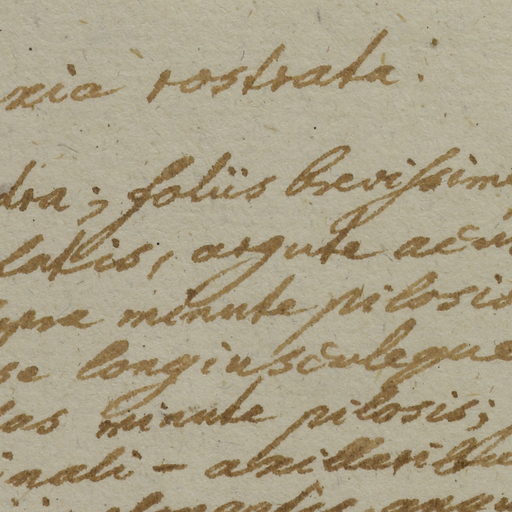 xia rostrata.
dra; foliis brevissime
latis, argute acum
pra minute pilosis
se longiusculeque
las minute pilosis;
inali - axillaribu